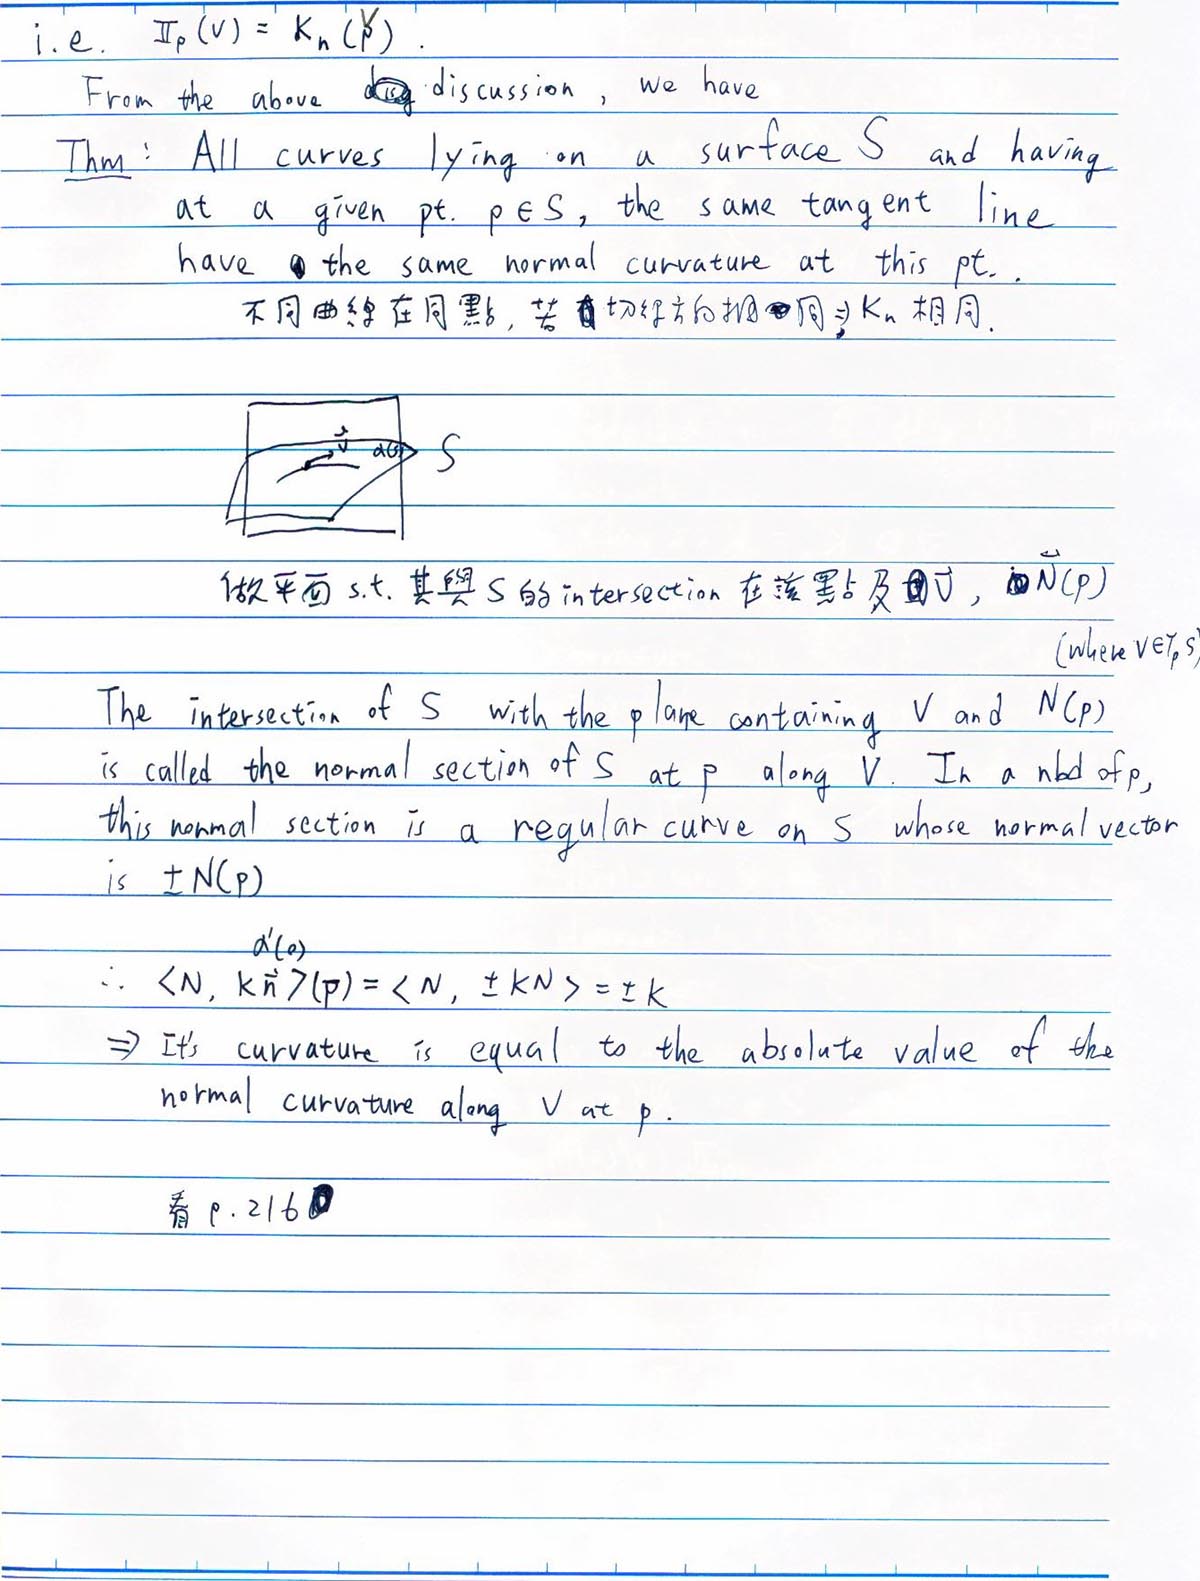 i.e. IIₚ(V) = Kₙ(V).
From the above discussion, we have
Thm: All curves lying on a surface S and having
at a given pt. p∈S, the same tangent line
have the same normal curvature at this pt..
不同曲線在同點, 若切線方向相同 ⇒ Kₙ 相同.
V⃗ α(s) S
做平面 s.t. 其與 S 的 intersection 在該點及 V⃗, N⃗(p)
(where V∈TₚS)
The intersection of S with the plane containing V and N(p)
is called the normal section of S at p along V. In a nbd of p,
this normal section is a regular curve on S whose normal vector
is ±N(p)
α'(0)
∴ <N, kn⃗>(p) = <N, ±kN> = ±k
⇒ It's curvature is equal to the absolute value of the
normal curvature along V at p.
看 p.216